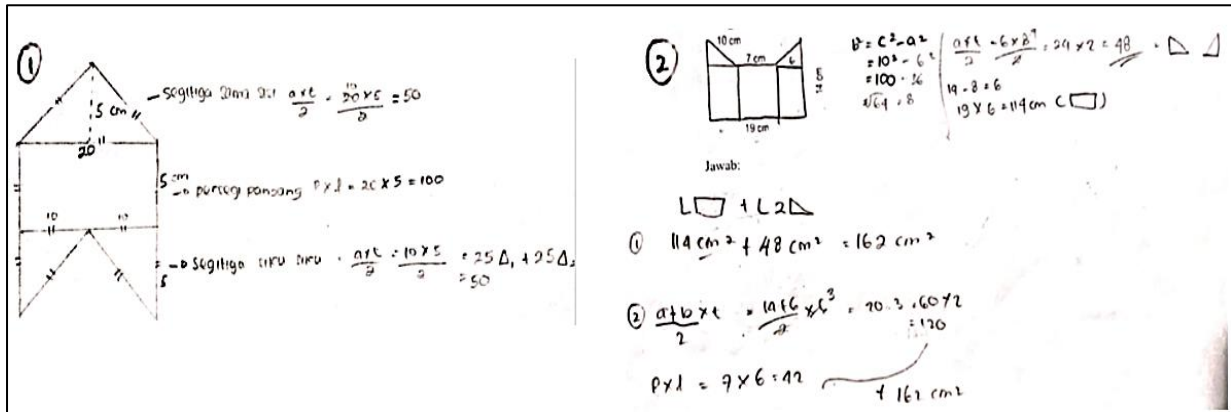 ①
5 cm
20
- segitiga sama sisi a×t/2 = 20×5/2 = 50
10
5 cm
- persegi panjang P×l = 20×5 = 100
10 10
- segitiga siku siku = a×t/2 = 10×5/2 = 25 Δ, + 25 Δ,
= 50
5
②
10 cm
7 cm
6
14 cm
19 cm
b² = c² - a²
= 10² - 6²
= 100 - 36
√64 = 8
a×t/2 = 6×8/2 = 24 × 2 = 48
14 - 8 = 6
19 × 6 = 114 cm
Jawab:
L + L 2
① 114 cm² + 48 cm² = 162 cm²
② a+b/2 × t = 14+6/2 × 6 3 = 20.3 = 60×2
= 120
P×l = 7×6 = 42
+ 162 cm²